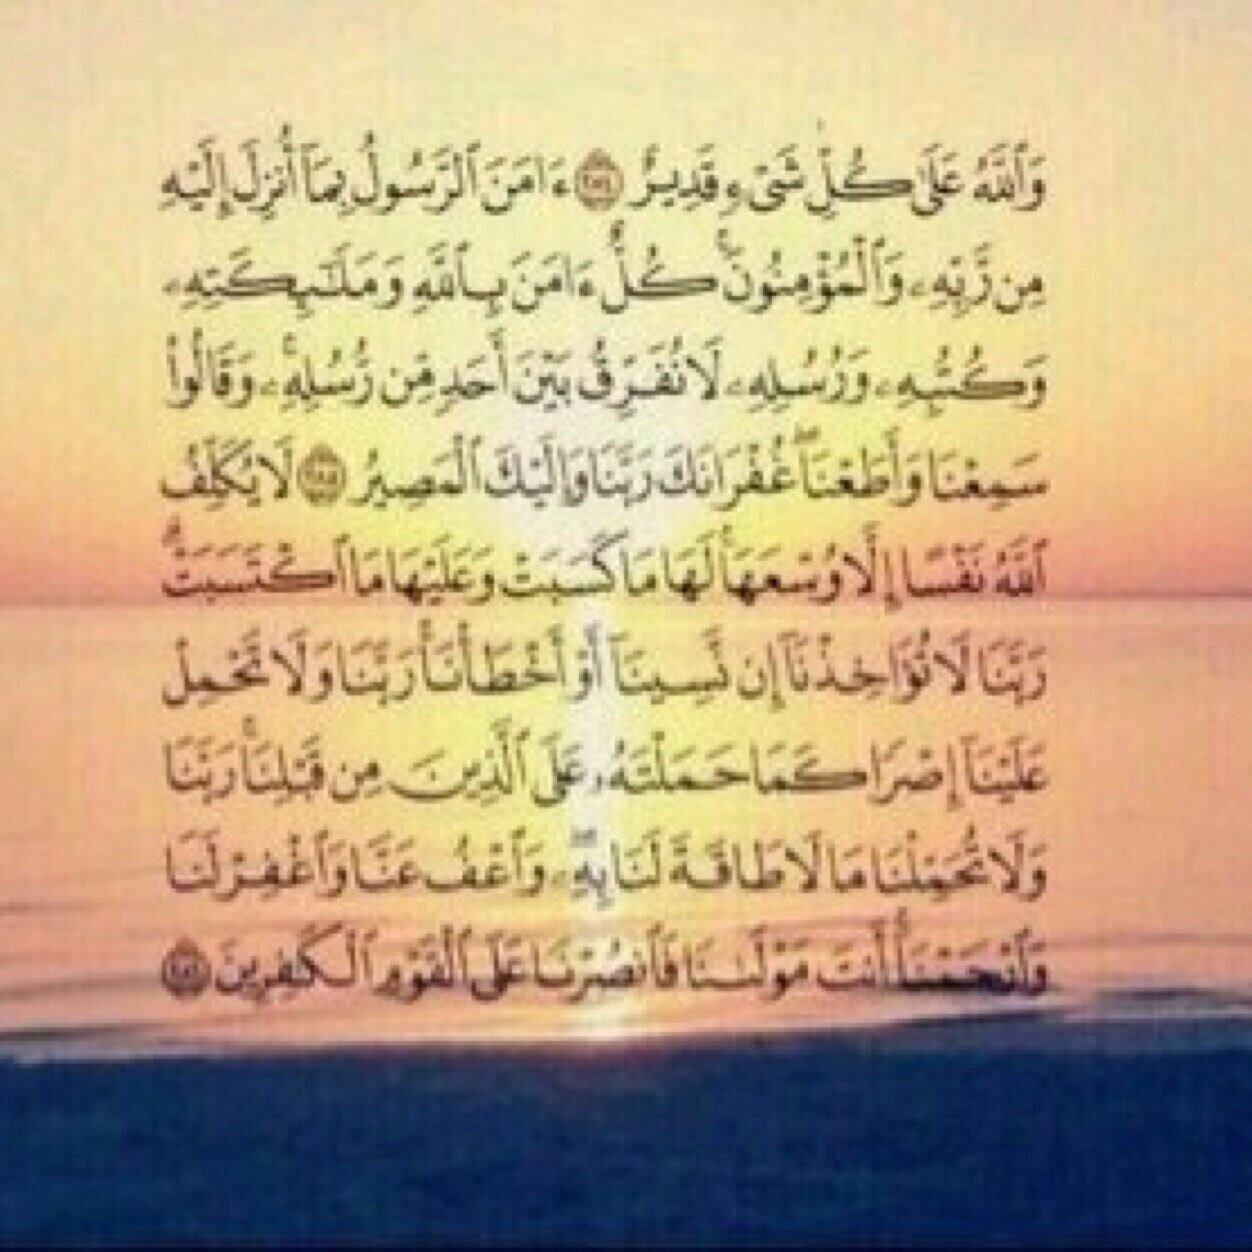 وَٱللَّهُ عَلَىٰ كُلِّ شَىْءٍ قَدِيرٌ ۝ ءَامَنَ ٱلرَّسُولُ بِمَآ أُنزِلَ إِلَيْهِ
مِن رَّبِّهِۦ وَٱلْمُؤْمِنُونَ ۚ كُلٌّ ءَامَنَ بِٱللَّهِ وَمَلَـٰٓئِكَتِهِۦ
وَكُتُبِهِۦ وَرُسُلِهِۦ لَا نُفَرِّقُ بَيْنَ أَحَدٍ مِّن رُّسُلِهِۦ ۚ وَقَالُوا۟
سَمِعْنَا وَأَطَعْنَا ۖ غُفْرَانَكَ رَبَّنَا وَإِلَيْكَ ٱلْمَصِيرُ ۝ لَا يُكَلِّفُ
ٱللَّهُ نَفْسًا إِلَّا وُسْعَهَا ۚ لَهَا مَا كَسَبَتْ وَعَلَيْهَا مَا ٱكْتَسَبَتْ ۗ
رَبَّنَا لَا تُؤَاخِذْنَآ إِن نَّسِينَآ أَوْ أَخْطَأْنَا ۚ رَبَّنَا وَلَا تَحْمِلْ
عَلَيْنَآ إِصْرًا كَمَا حَمَلْتَهُۥ عَلَى ٱلَّذِينَ مِن قَبْلِنَا ۚ رَبَّنَا
وَلَا تُحَمِّلْنَا مَا لَا طَاقَةَ لَنَا بِهِۦ ۖ وَٱعْفُ عَنَّا وَٱغْفِرْ لَنَا
وَٱرْحَمْنَآ ۚ أَنتَ مَوْلَىٰنَا فَٱنصُرْنَا عَلَى ٱلْقَوْمِ ٱلْكَـٰفِرِينَ ۝